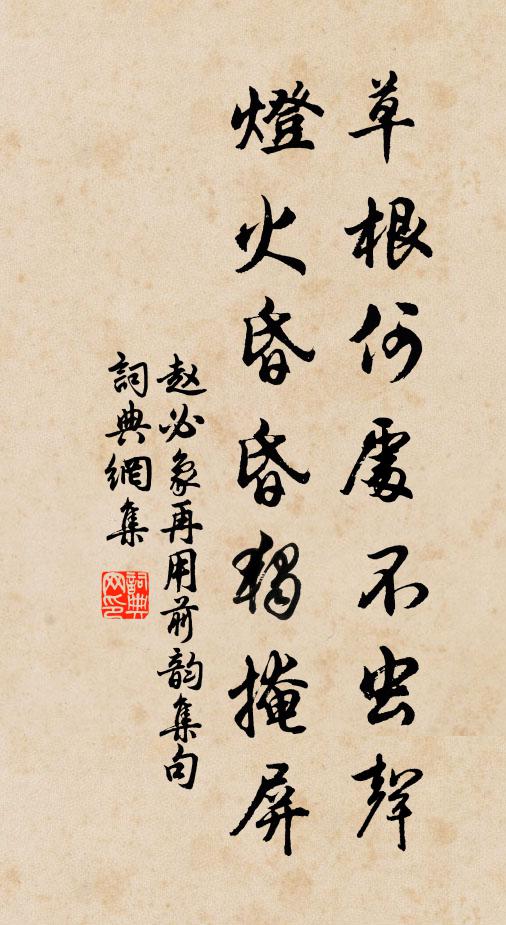 草根何處不虫聲
燈火昏昏獨掩屏
赵必象再用前韵集句
詞典網集
詞典網印